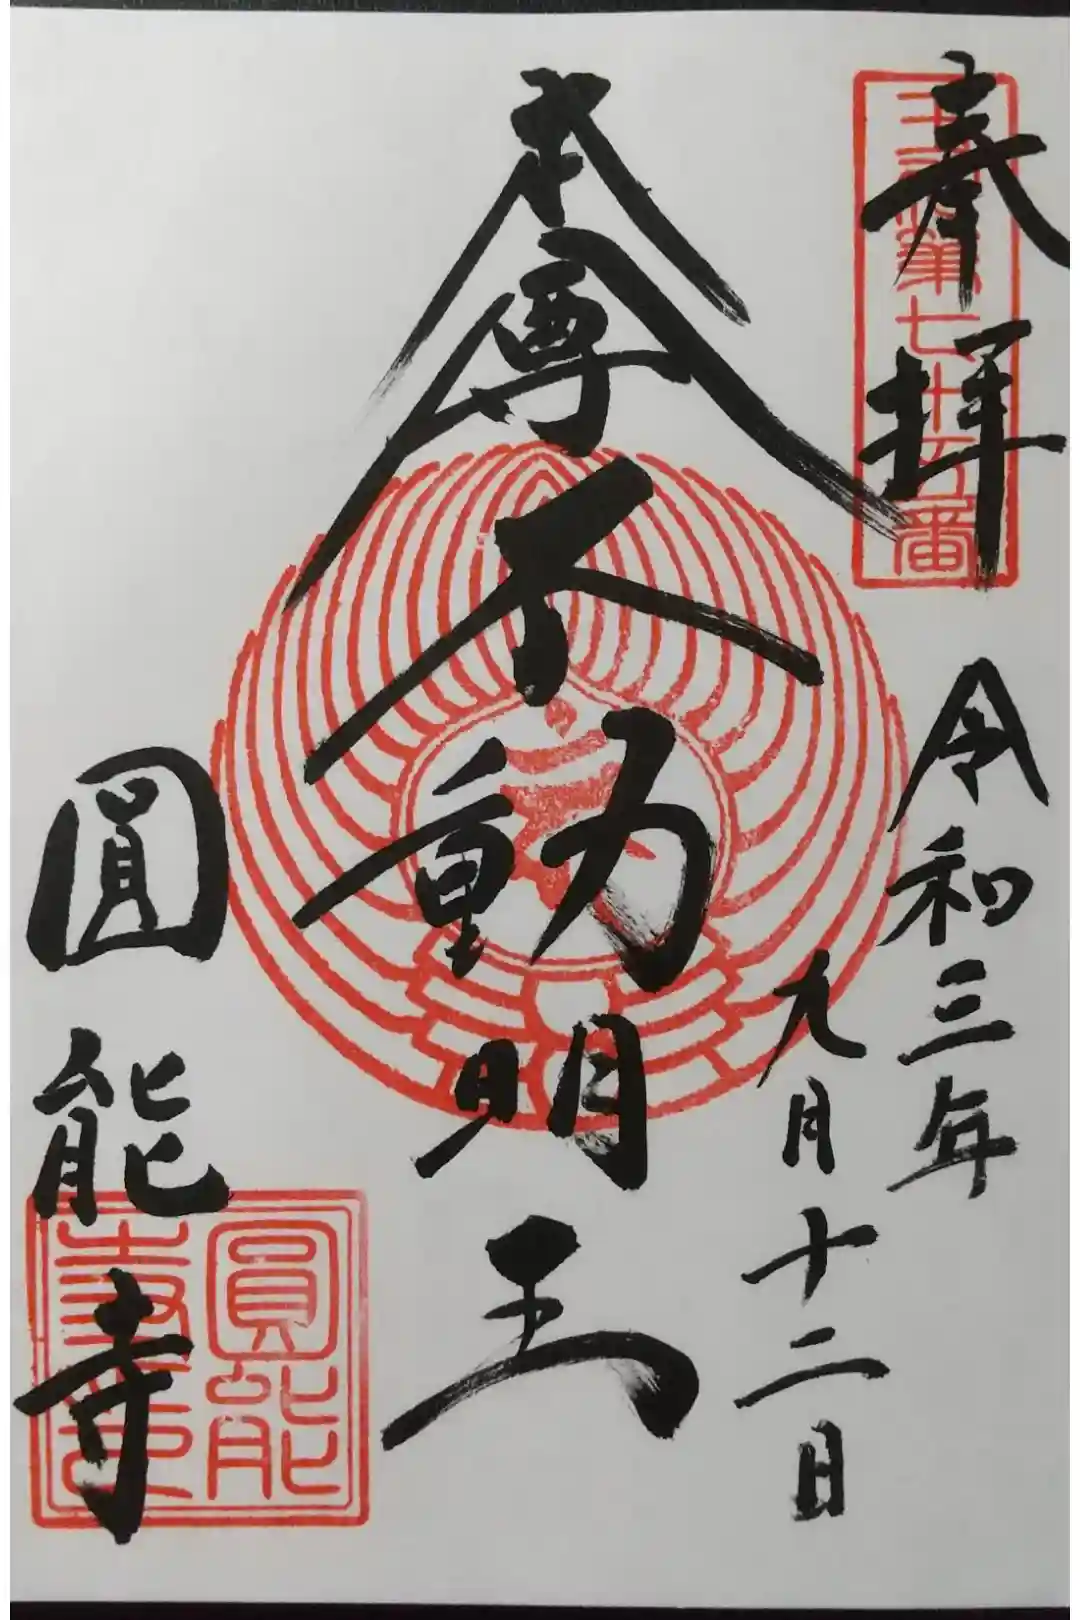 奉拝
第七十五番
令和三年
九月十二日
本尊不動明王
圓能寺
圓能
寺印